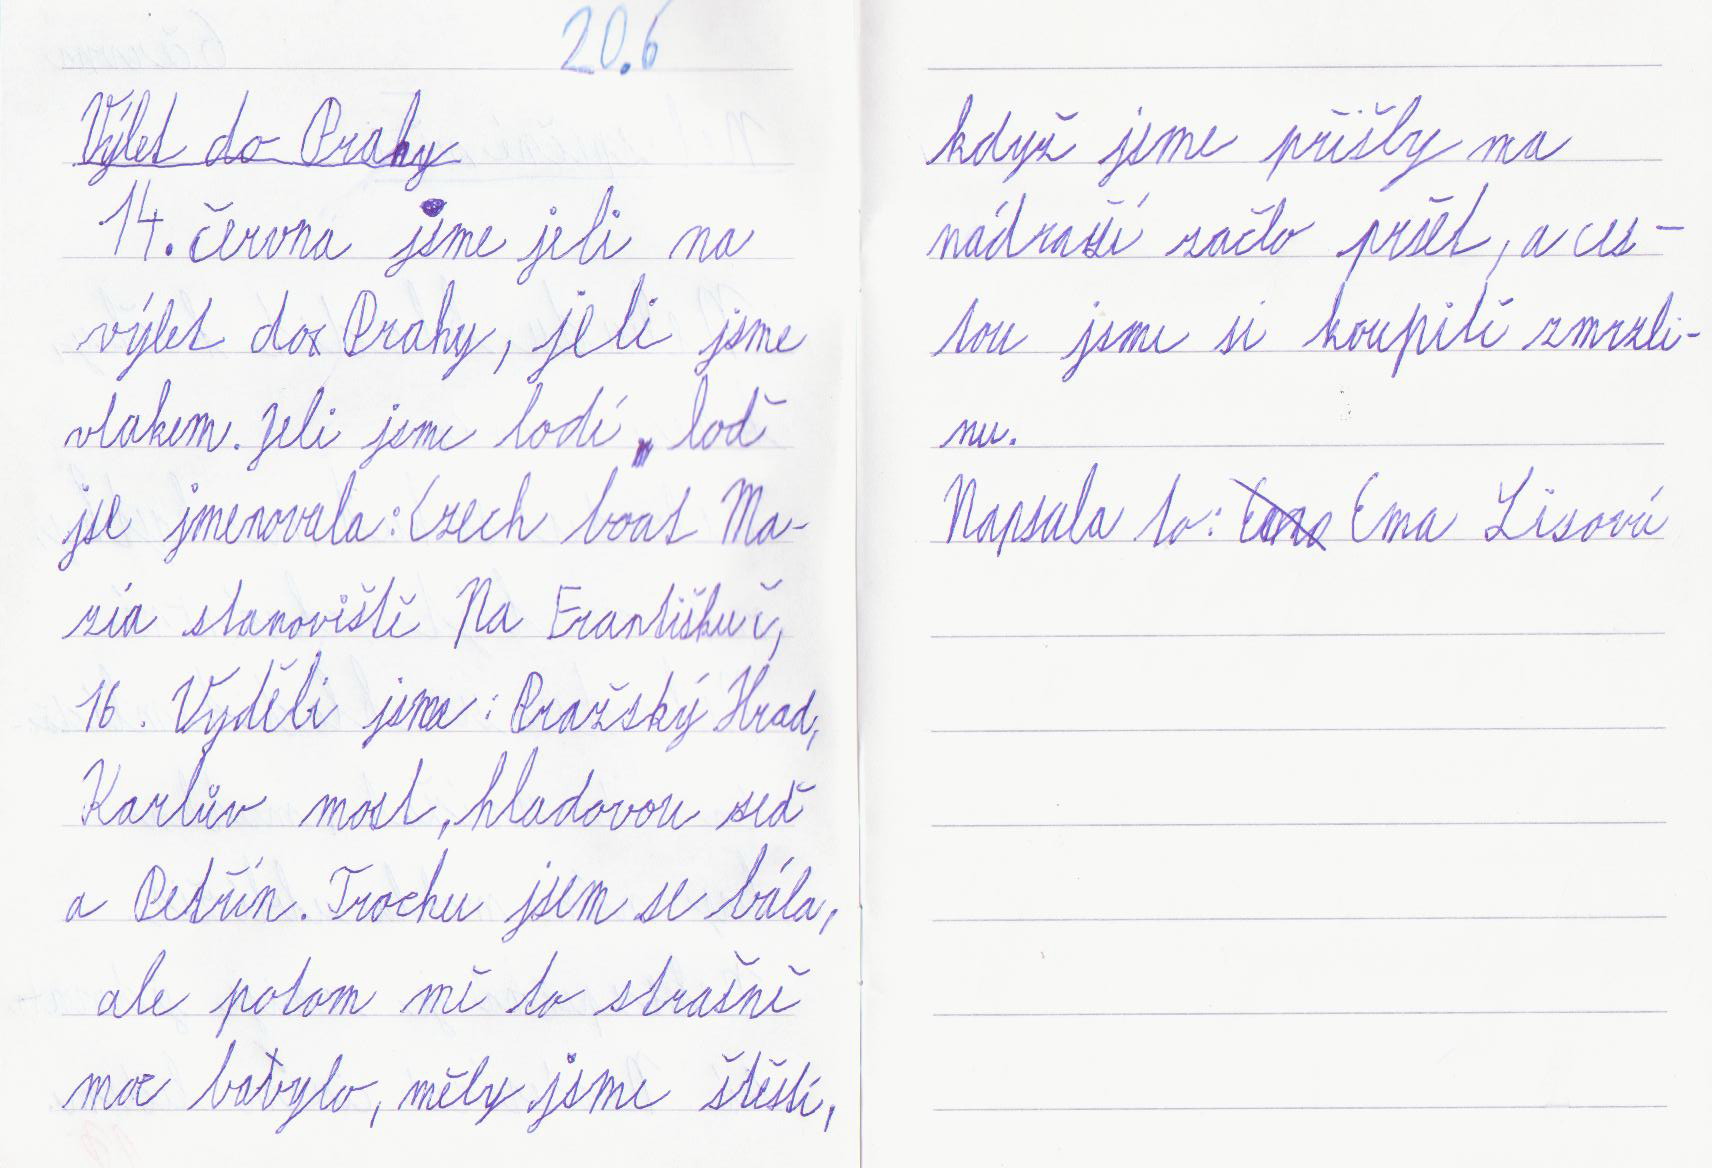 20.6
Výlet do Prahy
14. června jsme jeli na
výlet do Prahy, jeli jsme
vlakem. Jeli jsme lodí, loď
jse jmenovala: Czech boat Ma-
ria stanoviště Na Františku č,
16. Vyděli jsme: Pražský Hrad,
Karlův most, hladovou zeď
a Petřín. Trochu jsem se bála,
ale potom mě to strašně
moc bavylo, měly jsme štěstí,
když jsme přišly na
nádraží začlo pršet, a ces-
tou jsme si koupili zmrzli-
nu.
Napsala to: Ema Lisová